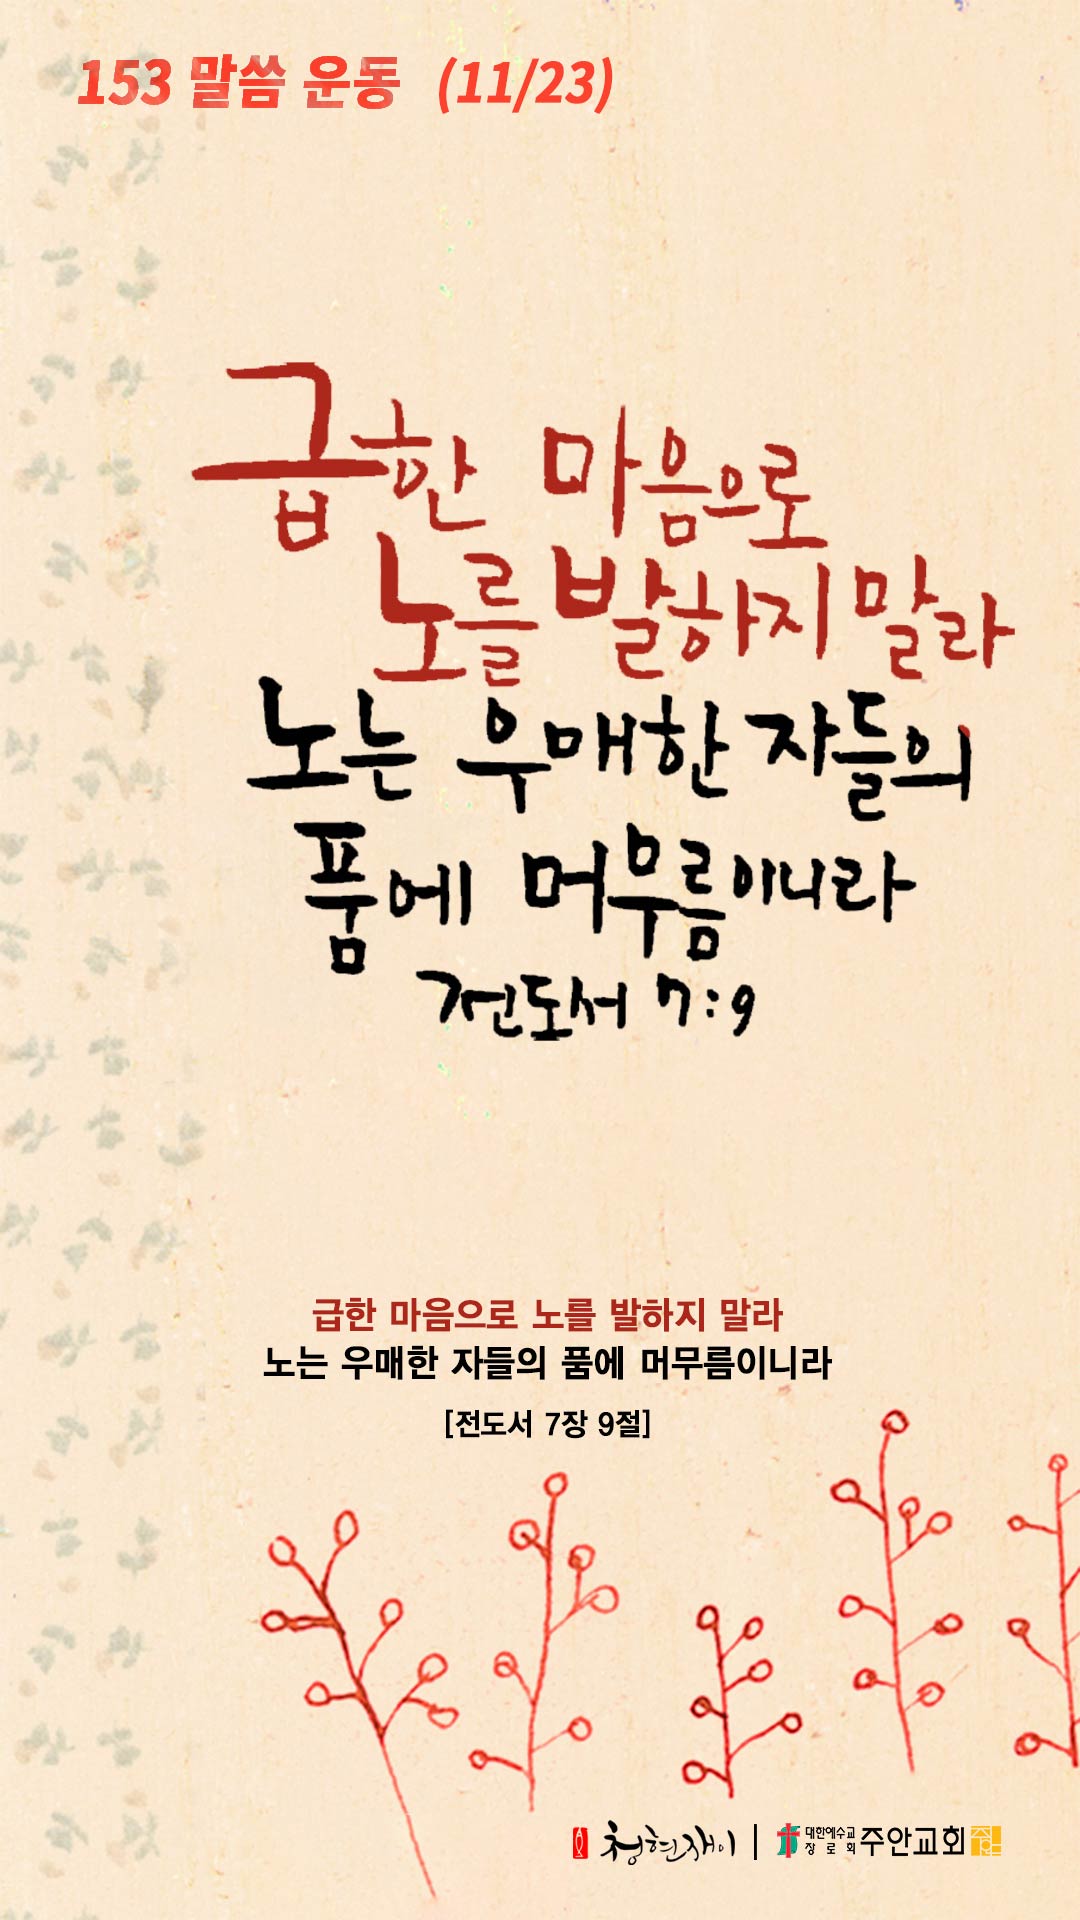 153 말씀 운동 (11/23)
급한 마음으로
노를 발하지 말라
노는 우매한 자들의
품에 머무름이니라
전도서 7:9
급한 마음으로 노를 발하지 말라
노는 우매한 자들의 품에 머무름이니라
[전도서 7장 9절]
청현재이 | 대한예수교 장로회 주안교회